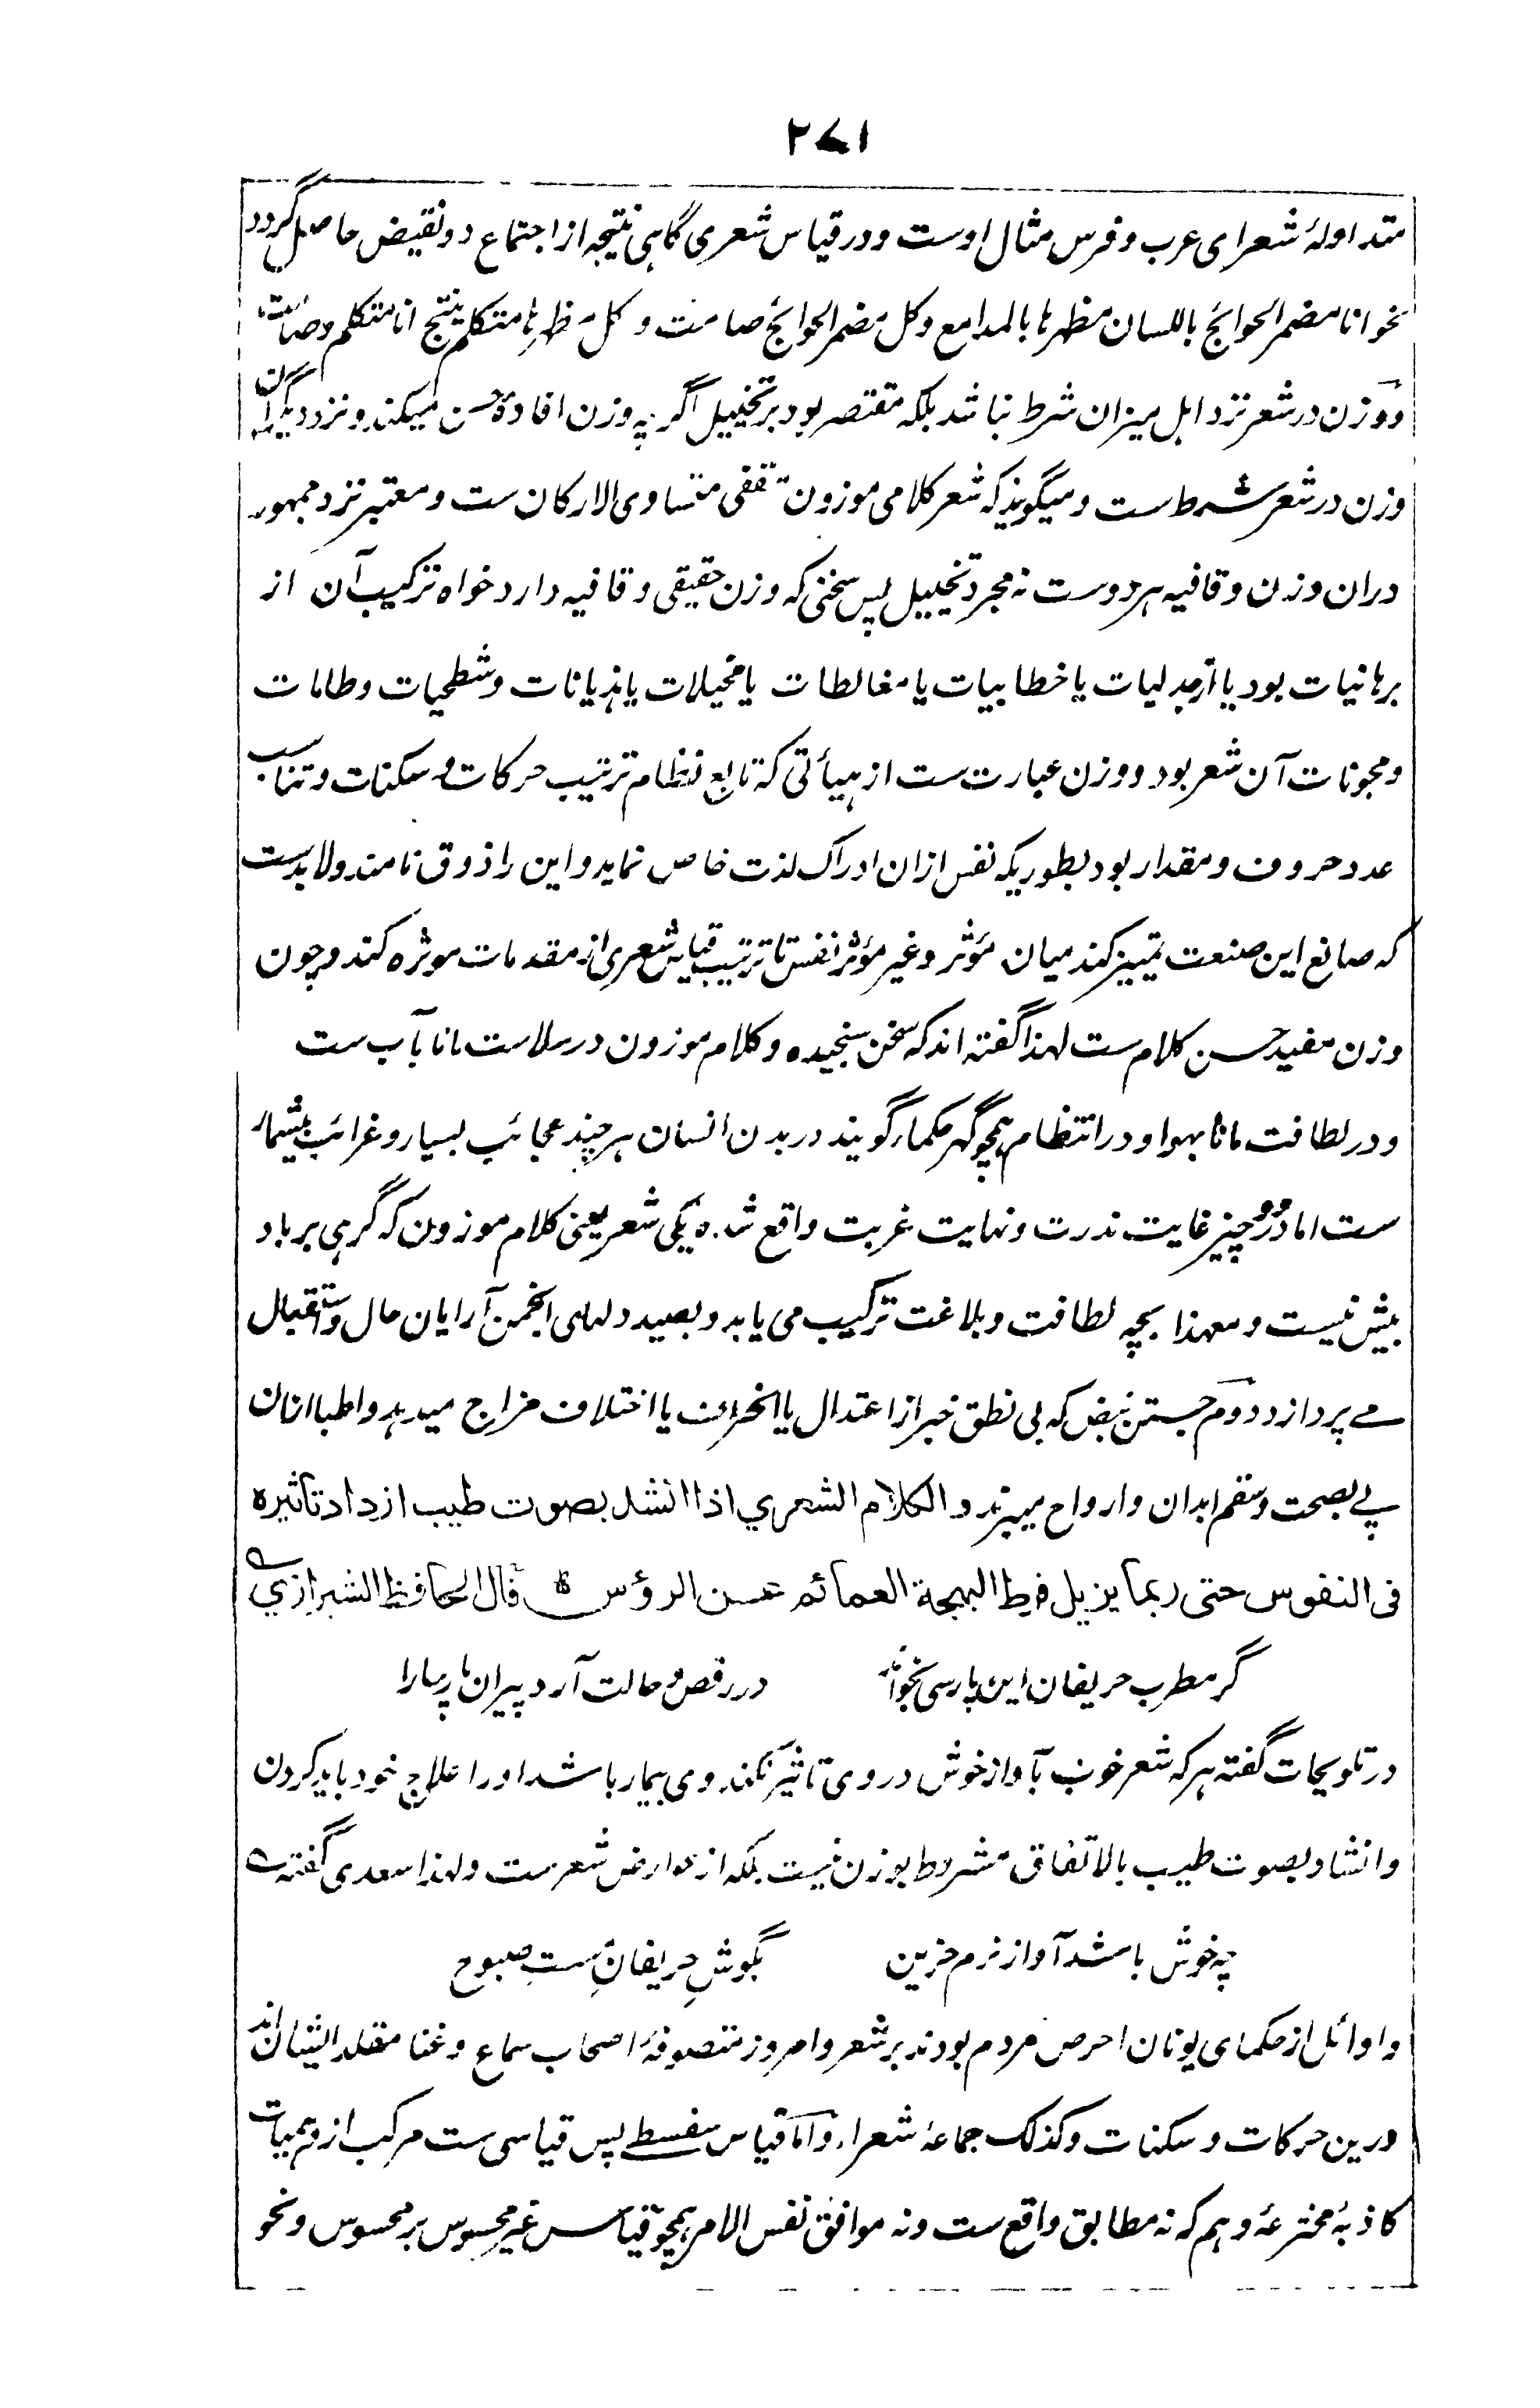 ۲۷۱
متداولۂ شعرای عرب و فرس مثال اوست و در قیاس شعری گاہی نتیجہ از اجتماع دو نقیض حاصل گردد
نحو انا مضمر الحوائج باللسان مظہرہا بالمدامع وکل مضمر الحوائج صامت و کل مظہرہا متکلم ینتج انا متکلم و صامت
و وزن در شعر نزد اہل میزان شرط نباشد بلکہ مقتصر بود بر تخییل اگرچہ وزن افادۂ حسن میکند و نزد دیگران
وزن در شعر شرط ست و میگویند کہ شعر کلامی موزون مقفی متساوی الارکان ست و معتبر نزد جمہور
دران وزن و قافیہ ہر دوست نہ مجرد تخییل پس سخنی کہ وزن حقیقی و قافیہ دارد خواہ ترکیب آن از
برہانیات بود یا از جدلیات یا خطابیات یا مغالطات یا مخیلات یا ہذیانات و شطحیات و طامات
و مجونات آن شعر بود و وزن عبارت ست از ہیأتی کہ تابع نظام ترتیب حرکات و سکنات و تناسب
عدد حروف و مقدار بود بطوریکہ نفس ازان ادراک لذت خاص نماید و این را ذوق نامند و لابدست
کہ صانع این صنعت تمییز کند میان مؤثر و غیر مؤثر نفس تا ترتیب قیاس شعری از مقدمات موثرہ کند و چون
وزن مفید حسن کلام ست لہذا گفتہ اند کہ سخن سنجیدہ و کلام موزون در سلاست مانا بآب ست
و در لطافت مانا بہوا و در انتظام ہمچو گہر حکما گویند در بدن انسان ہر چند عجائب بسیار و غرائب بیشمار
ست اما دو چیز غایت ندرت و نہایت غربت واقع شدہ یکی شعر یعنی کلام موزون کہ گرہی بر باد
بیش نیست و معہذا بچہ لطافت و بلاغت ترکیب می یابد و بصید دلہای انجمن آرایان حال و استقبال
مے پردازد دوم جستن نبض کہ بی نطق خبر از اعتدال یا انحراف یا اختلاف مزاج میدہد و اطبا ازان
پے بصحت و سقم ابدان و ارواح میبرند و الکلام الشعري اذا انشد بصوت طیب ازداد تاثیرہ
فی النفوس حتی ربما یزیل فرط البہجة العمائم عن الرؤس قال الحافظ الشیرازي ے
گر مطرب حریفان این پارسی بخواند در رقص و حالت آرد پیران پارسا را
در تلویحات گفتہ ہر کہ شعر خوب بآواز خوش در وی تاثیر نکند وی بیمار باشد او را علاج خود باید کردن
و انشاد بصوت طیب بالاتفاق مشروط بوزن نیست بلکہ از عوارض شعر ست و لہذا سعدی گفتہ ے
چہ خوش باشد آواز نرم حزین بگوشِ حریفانِ مستِ صبوح
و اوائل از حکمای یونان احرص مردم بودند بر شعر و امروز متصوفۂ اصحاب سماع و غنا مقلد ایشان اند
درین حرکات و سکنات و کذلک جماعۂ شعراء و اما قیاس سفسطے پس قیاسی ست مرکب از وہمیات
کاذبۂ مخترعۂ وہم کہ نہ مطابق واقع ست و نہ موافق نفس الامر ہمچو قیاس غیر محسوس بر محسوس و نحو